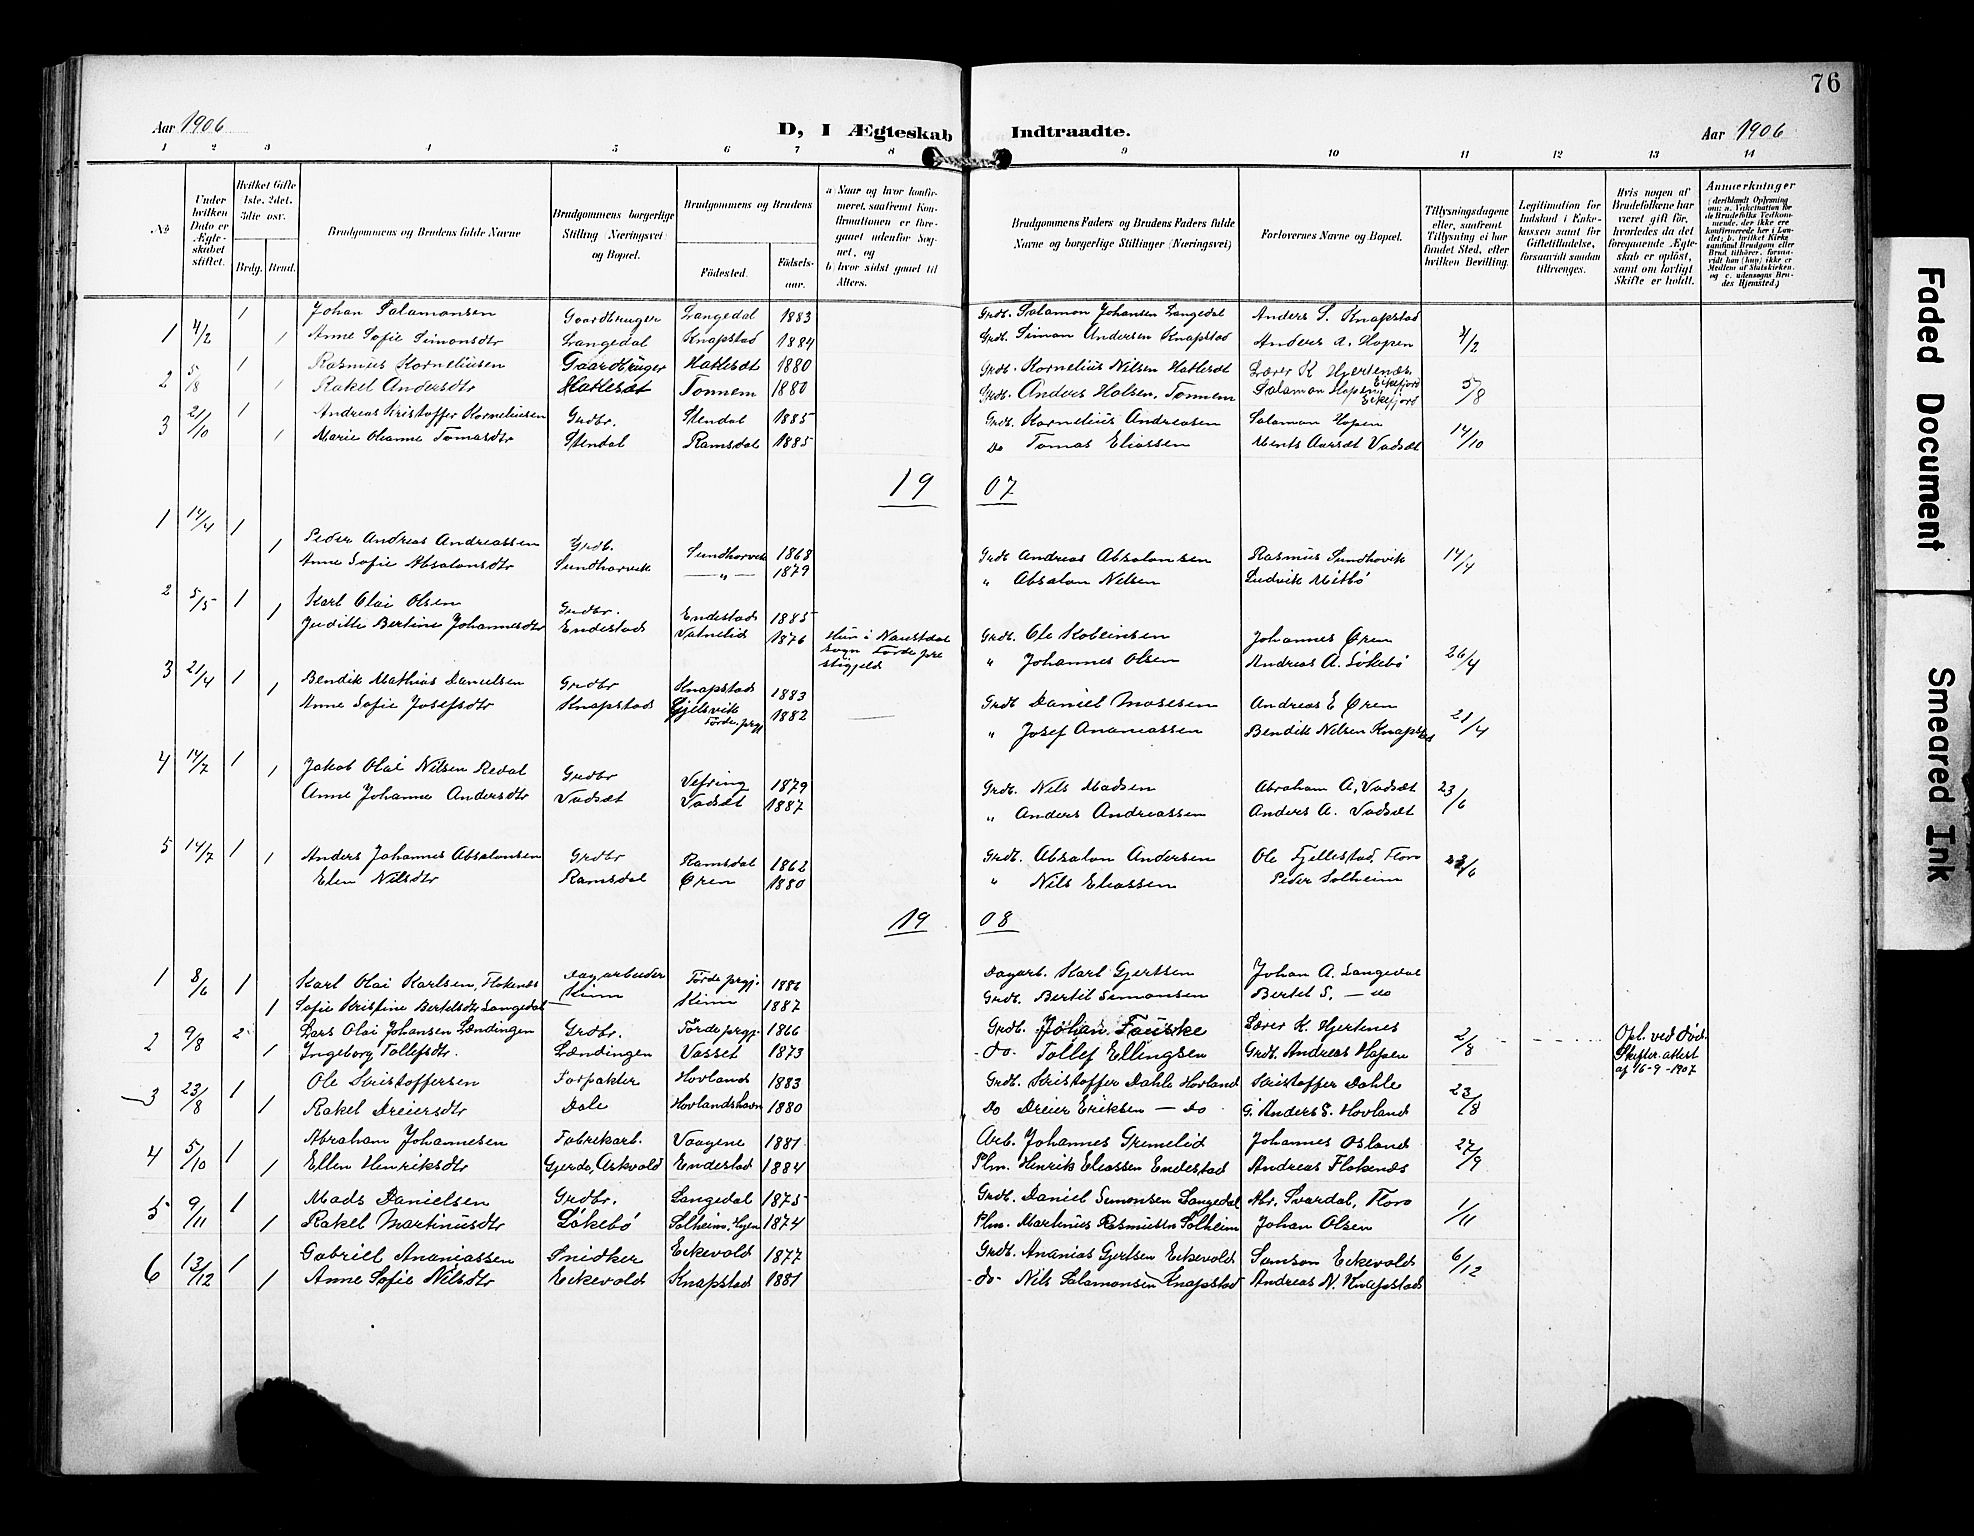 76
Aar 1906
D, I Ægteskab Indtraadte.
Aar 1906
1 2 3 4 5 6 7 8 9 10 11 12 13 14
No
Under hvilken Dato er Ægteskabet stiftet.
Hvilket Gifte 1ste, 2det, 3die osv.
Brdg. Brud.
Brudgommens og Brudens fulde Navne
Brudgommens borgerlige Stilling (Næringsvei) og Bopæl.
Brudgommens og Brudens
Fødested.
Fødselsaar.
a) Naar og hvor konfirmeret, saafremt Konfirmationen er foregaaet udenfor Sognet, og
b) hvor sidst gaaet til Alters.
Brudgommens Faders og Brudens Faders fulde Navne og borgerlige Stillinger (Næringsvei)
Forlovernes Navne og Bopæl.
Tillysningsdagene eller, saafremt Tillysning ei har fundet Sted, efter hvilken Bevilling.
Legitimation for Indskud i Enkekassen samt for Giftetilladelse, forsaavidt saadan tiltrænges.
Hvis nogen af Brudefolkene har været gift før, hvorledes da det foregaaende Ægteskab er opløst, samt om lovligt Skifte er holdt.
Anmærkninger
(deriblandt Oplysning om: a. Vakcination for de Brudefolks Vedkommende, der ikke ere konfirmerede her i Landet; b. hvilket Kirkesamfund Brudgom eller Brud tilhører, forsaavidt han (hun) ikke er Medlem af Statskirken, og c. udensogns Brudes Hjemsted.)
1 4/2 1 Johan Salamonsen Gaardbruger Langedal 1883 Grdb. Salamon Johansen Langedal Anders S. Knapstad 4/2
1 Anne Sofie Simonsdtr Langedal Knapstad 1884 Grdb. Simon Andersen Knapstad Anders A. Hopen
2 5/8 1 Rasmus Korneliusen Gaardbruger Hatlesæt 1880 Grdb. Kornelius Nilsen Hatlesæt Lærer K Hjertenæs, Eikefjord 5/8
1 Rakel Andersdtr Hatlesæt Tonnem 1880 Grdb. Anders Tonnem Salamon Hopen, Eikefjord
3 21/10 1 Andreas Kristoffer Korneliusen Grdbr. Stendal 1885 Grdb. Kornelius Andreasen Salamon Hopen 14/10
1 Marie Oleanne Tomasdtr Stendal Ramsdal 1885 Do Tomas Eliassen Ments Aarsæt Vadsæt
19 07
1 14/4 1 Peder Andreas Andreassen Grdb. Sundhorvik 1868 Grdb Andreas Absalonsen Rasmus Sundhovik 14/4
1 Anne Sofie Absalonsdtr Sundhorvik — " — 1879 " Absalon Nilsen Ludvik Mitbø
2 5/5 1 Karl Olai Olsen Grdbr. Endestad 1885 Grdb. Ole Johannes Øren 26/4
1 Juditte Bertine Johannesdtr Endestad Vatnelid 1876 Hun i Naustdal sogn Førde prestigjeld " Johannes Olsen Andreas A. Løkebø
3 21/4 1 Bendik Mathias Danielsen Grdbr Knapstad 1883 Grdb Daniel Mosesen Andreas E Øren 21/4
1 Anne Sofie Josefsdtr Knapstad Gjelsvik Førde prgj 1882 — " Josef Ananiassen Bendik Nilsen Knapstad
4 14/7 1 Jakob Olai Nilsen Redal Grdbr Vefring 1879 Grdb. Nils Madsen Abraham A. Vadsæt 23/6
1 Anne Johanne Andersdtr Vadsæt Vadsæt 1887 " Anders Andreassen Anders A. Vadsæt
5 14/7 1 Anders Johannes Absalonsen Grdbr Ramsdal 1862 Grdb. Absalon Andersen Ole Fjellestad, Florø 23/6
1 Elen Nilsdtr Ramsdal Øren 1880 " Nils Eliassen Peder Solheim
19 08
1 8/6 1 Karl Olai Karlsen, Flokenes Dagarbeider Førde prgj. 1886 Dagarb. Karl Gjertsen Johan A. Langedal
1 Sofie Kristine Bertelsdtr Langedal Kinn Kinn 1887 Grdb. Bertil Simonsen Bertel S. — do
2 9/8 2 Lars Olai Johansen Lændingen Grdbr. Førde prgj. 1866 Grdb. Johan Fauske Lærer K. Hjertenes 2/8 Opl. ved Død.
1 Ingeborg Tollefsdtr. Lændingen Vasset 1873 -do- Tollef Ellingsen Grdb. Andreas Hopen Skifter.attest af 16-9-1907
3 23/8 1 Ole Kristoffersen Forpakter Hovland 1883 Grdb. Kristoffer Dahle Hovland Kristoffer Dahle 23/8
1 Rakel Dreiersdtr Dale Hovlandshavn 1880 Do Dreier Eriksen — do G. Anders S. Hovland
4 5/10 1 Abraham Johannesen Fabrekarb. Vaagene 1881 Arb. Johannes Gremelid Johannes Osland 27/9
1 Ellen Henriksdtr Gjerde, Askvold Endestad 1884 Plm. Henrik Eliassen Endestad Andreas Flokenes
5 9/11 1 Mads Danielsen Grdbr. Langedal 1875 Grdb. Daniel Simonsen Langedal Abr. Svardal, Florø 1/11
1 Rakel Martinusdtr Løkebø Solheim, Hyen 1874 Plm. Martinus Rasmussen Solheim Johan Olsen
6 13/12 1 Gabriel Ananiassen Snidker Eikevold 1877 Grdb. Ananias Gjertsen Eikevold Samson Eikevold 6/12
1 Anne Sofie Nilsdtr Eikevold Knapstad 1881 -do- Nils Salamonsen Knapstad Andreas N. Knapstad
Faded Document
Smeared Ink